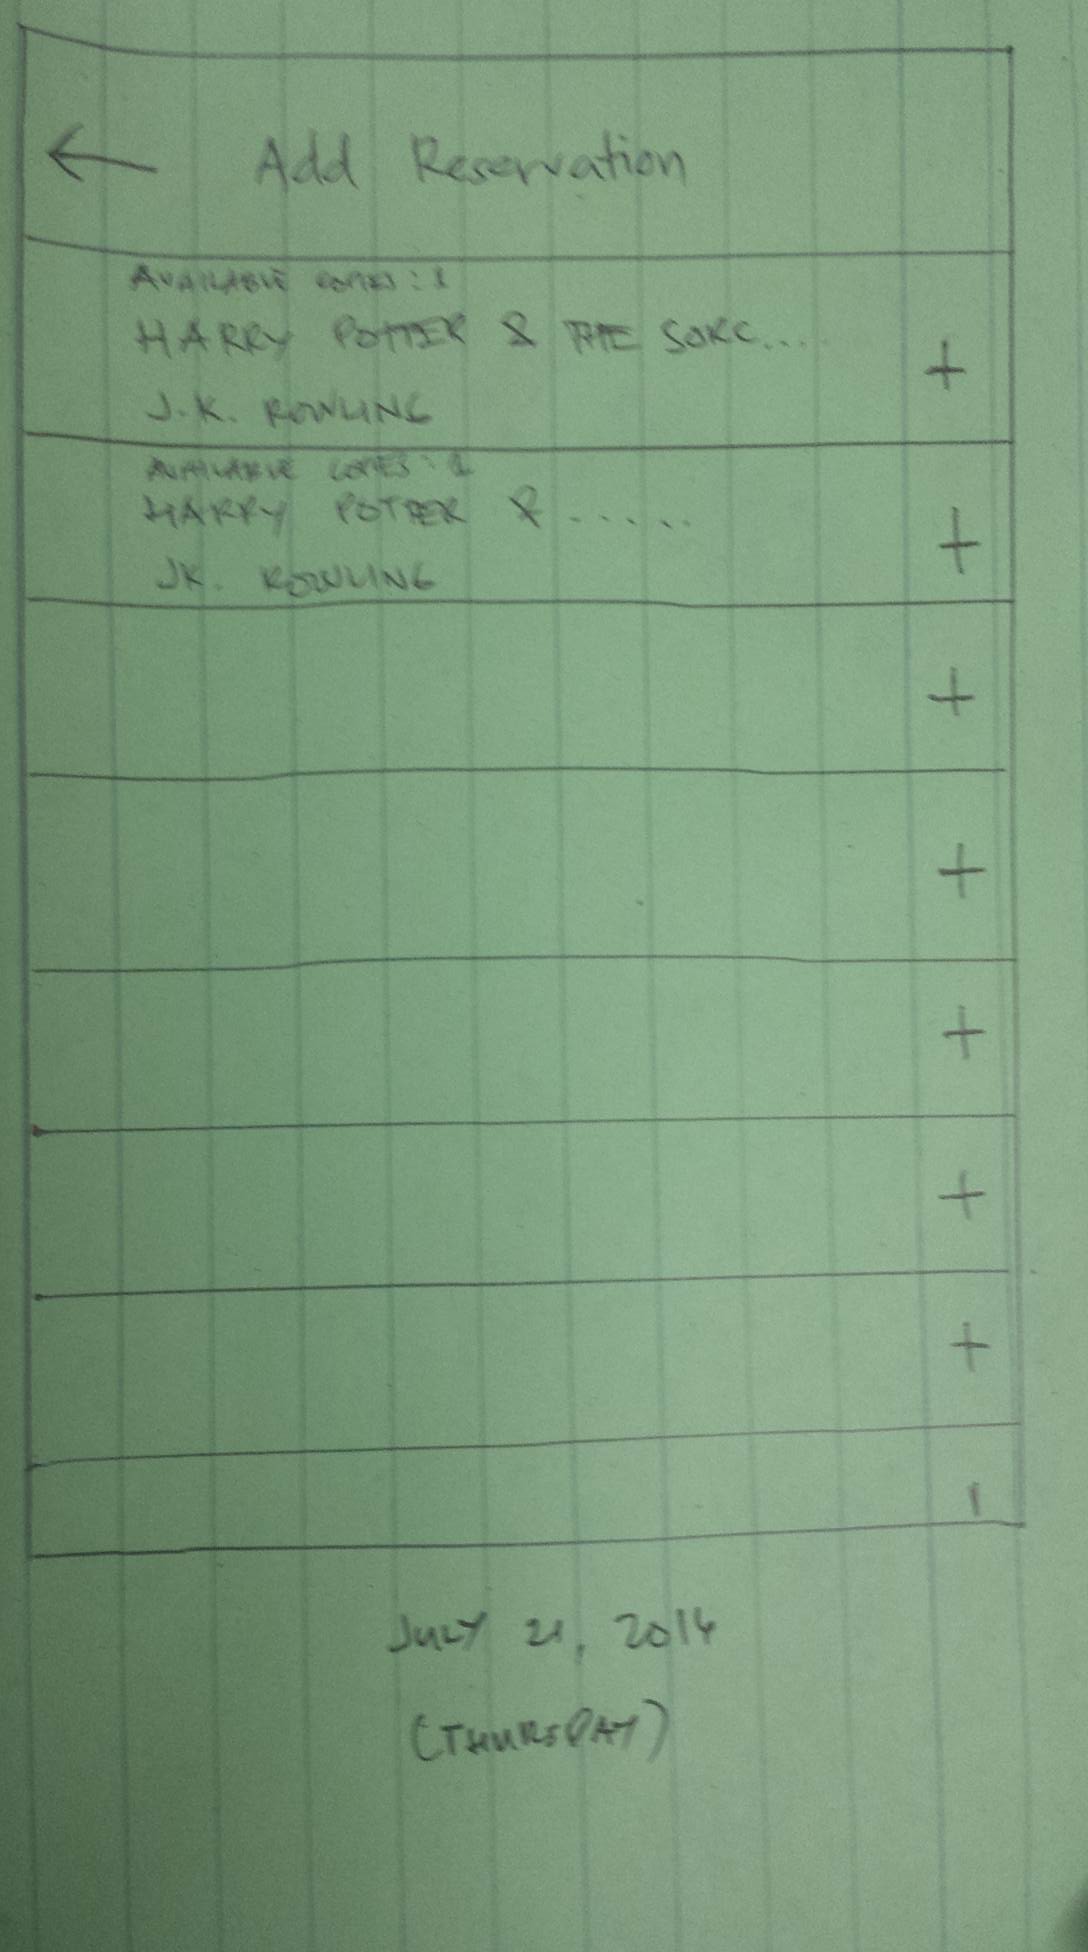 ← Add Reservation
AVAILABLE COPIES : 1
HARRY POTTER & THE SORC....
+
J.K. ROWLING
AVAILABLE COPIES : 1
HARRY POTTER & ......
+
JK. ROWLING
+
+
+
+
+
JULY 21, 2016
(THURSDAY)